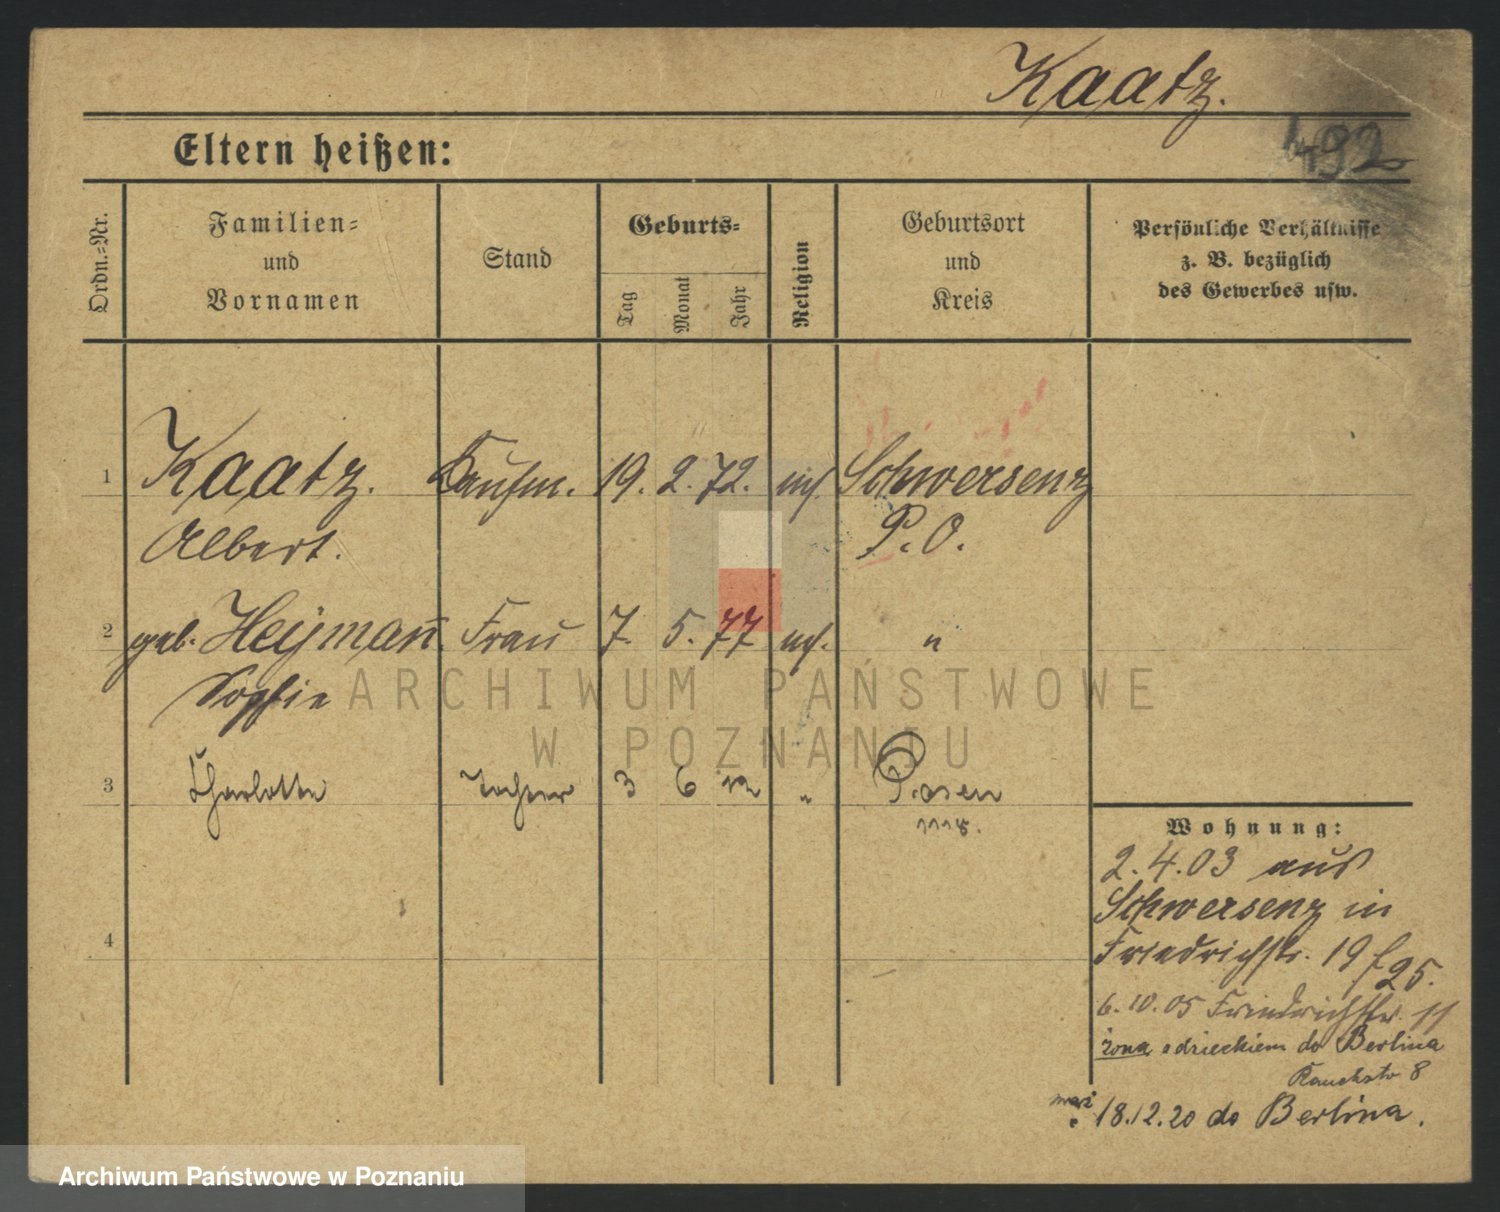 Kaatz.
492
Eltern heißen:
Ordn.-Nr.
Familien-
und
Vornamen
Stand
Geburts-
Tag
Monat
Jahr
Religion
Geburtsort
und
Kreis
Persönliche Verhältnisse
z. B. bezüglich
des Gewerbes usw.
1 Kaatz. Kaufm. 19. 2. 72. Schwersenz
Albert. P. O.
2 geb. Heyman̄. Frau 7. 5. 77 "
Sophie
3 Charlotte Tochter 3 6 12 " Posen
4
Wohnung:
2. 4. 03 aus
Schwersenz in
Friedrichstr. 19 f 25.
6. 10. 05 Friedrichstr. 11
żona z dzieckiem do Berlina
Rauchstr 8
mąż 18.12.20 do Berlina.
ARCHIWUM PAŃSTWOWE
W POZNANIU
Archiwum Państwowe w Poznaniu